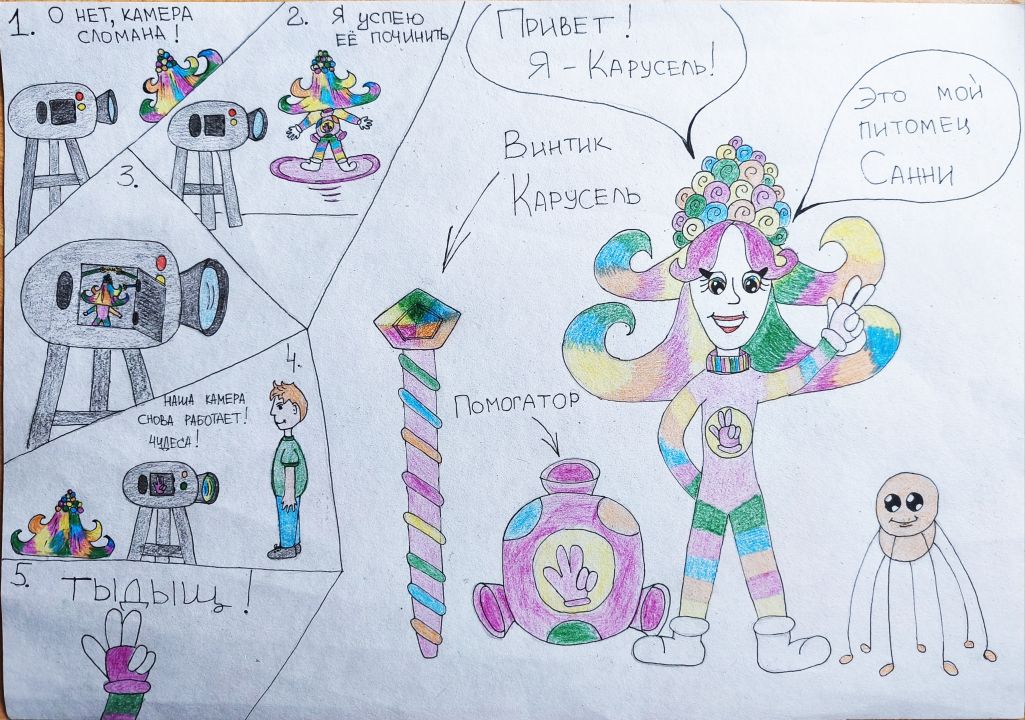 1. О НЕТ, КАМЕРА
СЛОМАНА!
2. Я УСПЕЮ
ЕЁ ПОЧИНИТЬ
3.
4.
НАША КАМЕРА
СНОВА РАБОТАЕТ!
ЧУДЕСА!
5. ТЫДЫЩ!
ПРИВЕТ!
Я - КАРУСЕЛЬ!
ЭТО МОЙ
ПИТОМЕЦ
САННИ
ВИНТИК
КАРУСЕЛЬ
ПОМОГАТОР